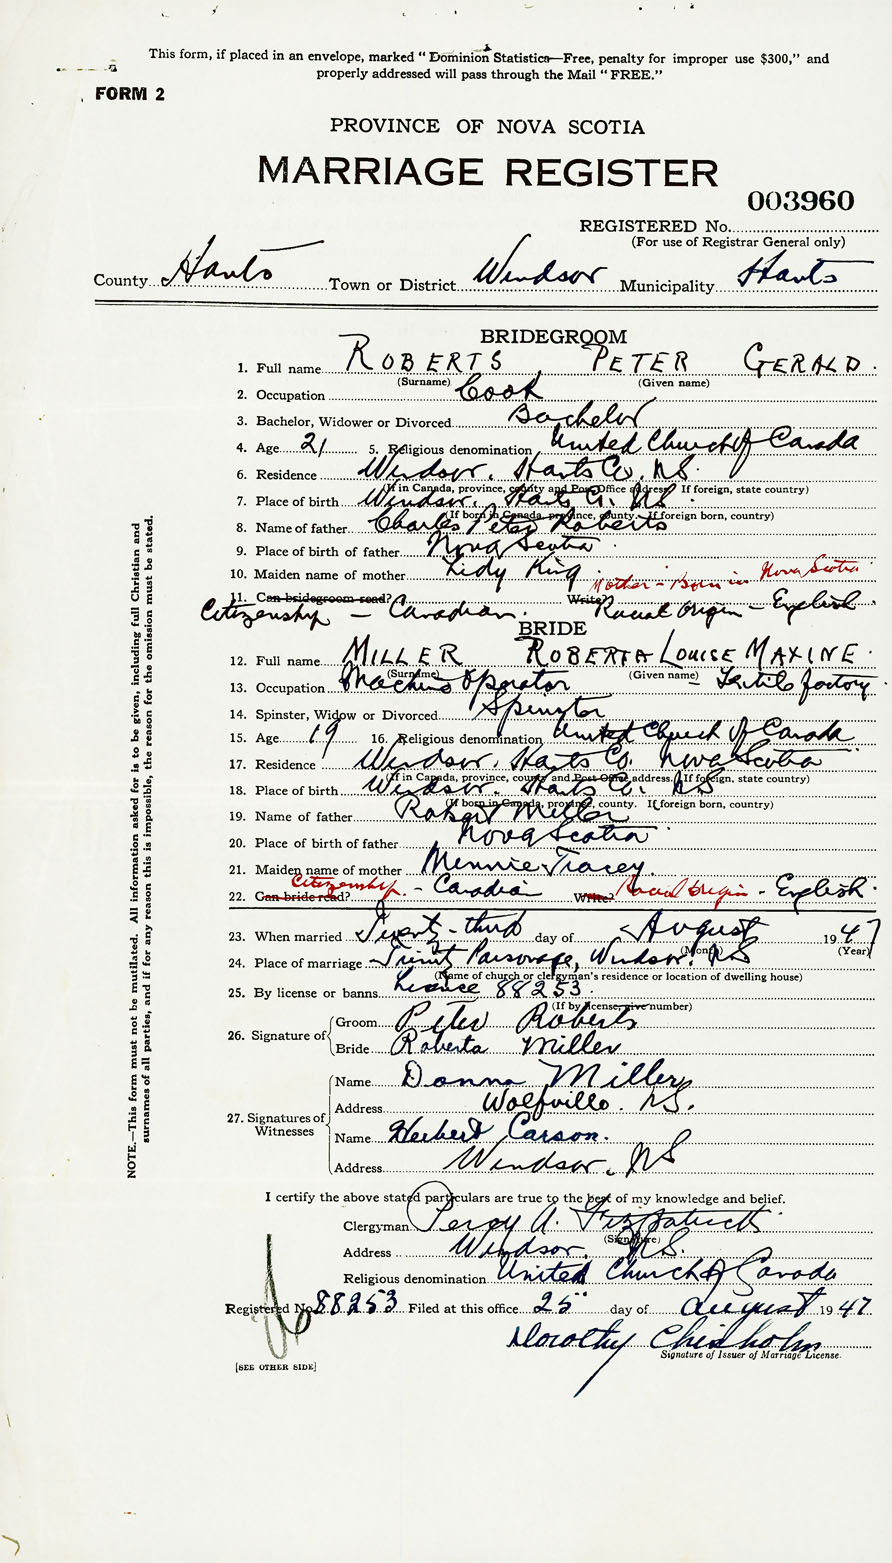 This form, if placed in an envelope, marked "Dominion Statistics—Free, penalty for improper use $300," and
properly addressed will pass through the Mail "FREE."
FORM 2
PROVINCE OF NOVA SCOTIA
MARRIAGE REGISTER
003960
REGISTERED No.
(For use of Registrar General only)
County Hants Town or District Windsor Municipality Hants
BRIDEGROOM
1. Full name ROBERTS, PETER GERALD.
(Surname) (Given name)
2. Occupation Cook
3. Bachelor, Widower or Divorced Bachelor
4. Age 21 5. Religious denomination United Church of Canada
6. Residence Windsor, Hants Co. N.S.
(If in Canada, province, county and Post Office address. If foreign, state country)
7. Place of birth Windsor, Hants Co. N.S.
(If born in Canada, province, county. If foreign born, country)
8. Name of father Charles Peter Roberts
9. Place of birth of father Nova Scotia
10. Maiden name of mother Lidy King
Mother - Born in Nova Scotia
11. Can bridegroom read? Write?
Citizenship - Canadian. Racial Origin - English.
BRIDE
12. Full name MILLER ROBERTA LOUISE MAXINE.
(Surname) (Given name)
13. Occupation Machine Operator - Textile factory.
14. Spinster, Widow or Divorced Spinster
15. Age 19 16. Religious denomination United Church of Canada
17. Residence Windsor, Hants Co. Nova Scotia
(If in Canada, province, county and Post Office address. If foreign, state country)
18. Place of birth Windsor. Hants Co. NS
(If born in Canada, province, county. If foreign born, country)
19. Name of father Robert Miller
20. Place of birth of father Nova Scotia
21. Maiden name of mother Minnie Tracey.
22. Can bride read? Citizenship - Canadian Write? Racial Origin - English.
23. When married Twenty-third day of August 1947
(Month) (Year)
24. Place of marriage Trinity Parsonage, Windsor, NS
(Name of church or clergyman's residence or location of dwelling house)
25. By license or banns Licence 88253.
(If by license give number)
26. Signature of Groom Peter Roberts
Bride Roberta Miller
27. Signatures of Witnesses
Name Donna Miller
Address Wolfville. N.S.
Name Herbert Carson.
Address Windsor, NS
I certify the above stated particulars are true to the best of my knowledge and belief.
Clergyman Percy A. Fitzpatrick
(Signature)
Address Windsor, N.S.
Religious denomination United Church of Canada
Registered No 88253 Filed at this office 25" day of August 1947
Dorothy Chisholm
Signature of Issuer of Marriage License.
[SEE OTHER SIDE]
NOTE.—This form must not be mutilated. All information asked for is to be given, including full Christian and
surnames of all parties, and if for any reason this is impossible, the reason for the omission must be stated.